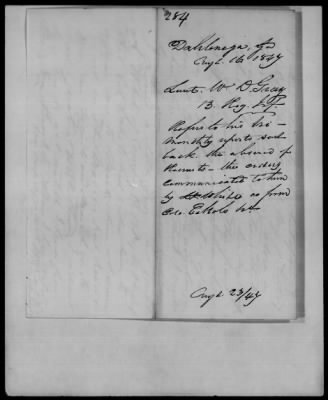 284
Dahlonega, Ga
Augt. 16. 1847
Lieut. W. D. Gray
13. Reg. Inf.
Refers to his tri-
monthly reports sent
back. the absence of
Recruits - the orders
communicated to him
by White as from
Col. Echols &c
Augt. 23/47